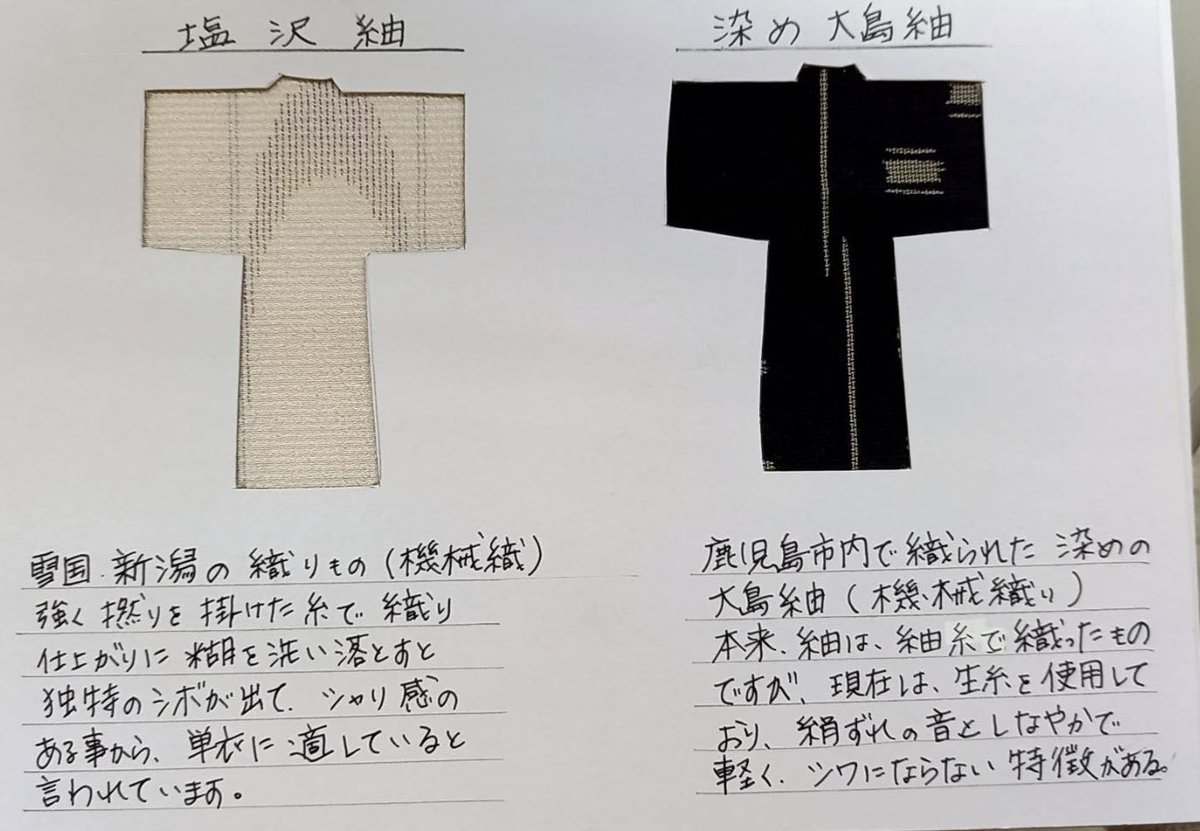 塩沢紬
雪国.新潟の織りもの(機械織)
強く撚りを掛けた糸で織り
仕上がりに糊を洗い落とすと
独特のシボが出て.シャリ感の
ある事から、単衣に適していると
言われています。
染め大島紬
鹿児島市内で織られた染めの
大島紬(機械織り)
本来.紬は、紬糸で織ったもの
ですが、現在は、生糸を使用して
おり、絹ずれの音としなやかで
軽く.シワにならない特徴がある。